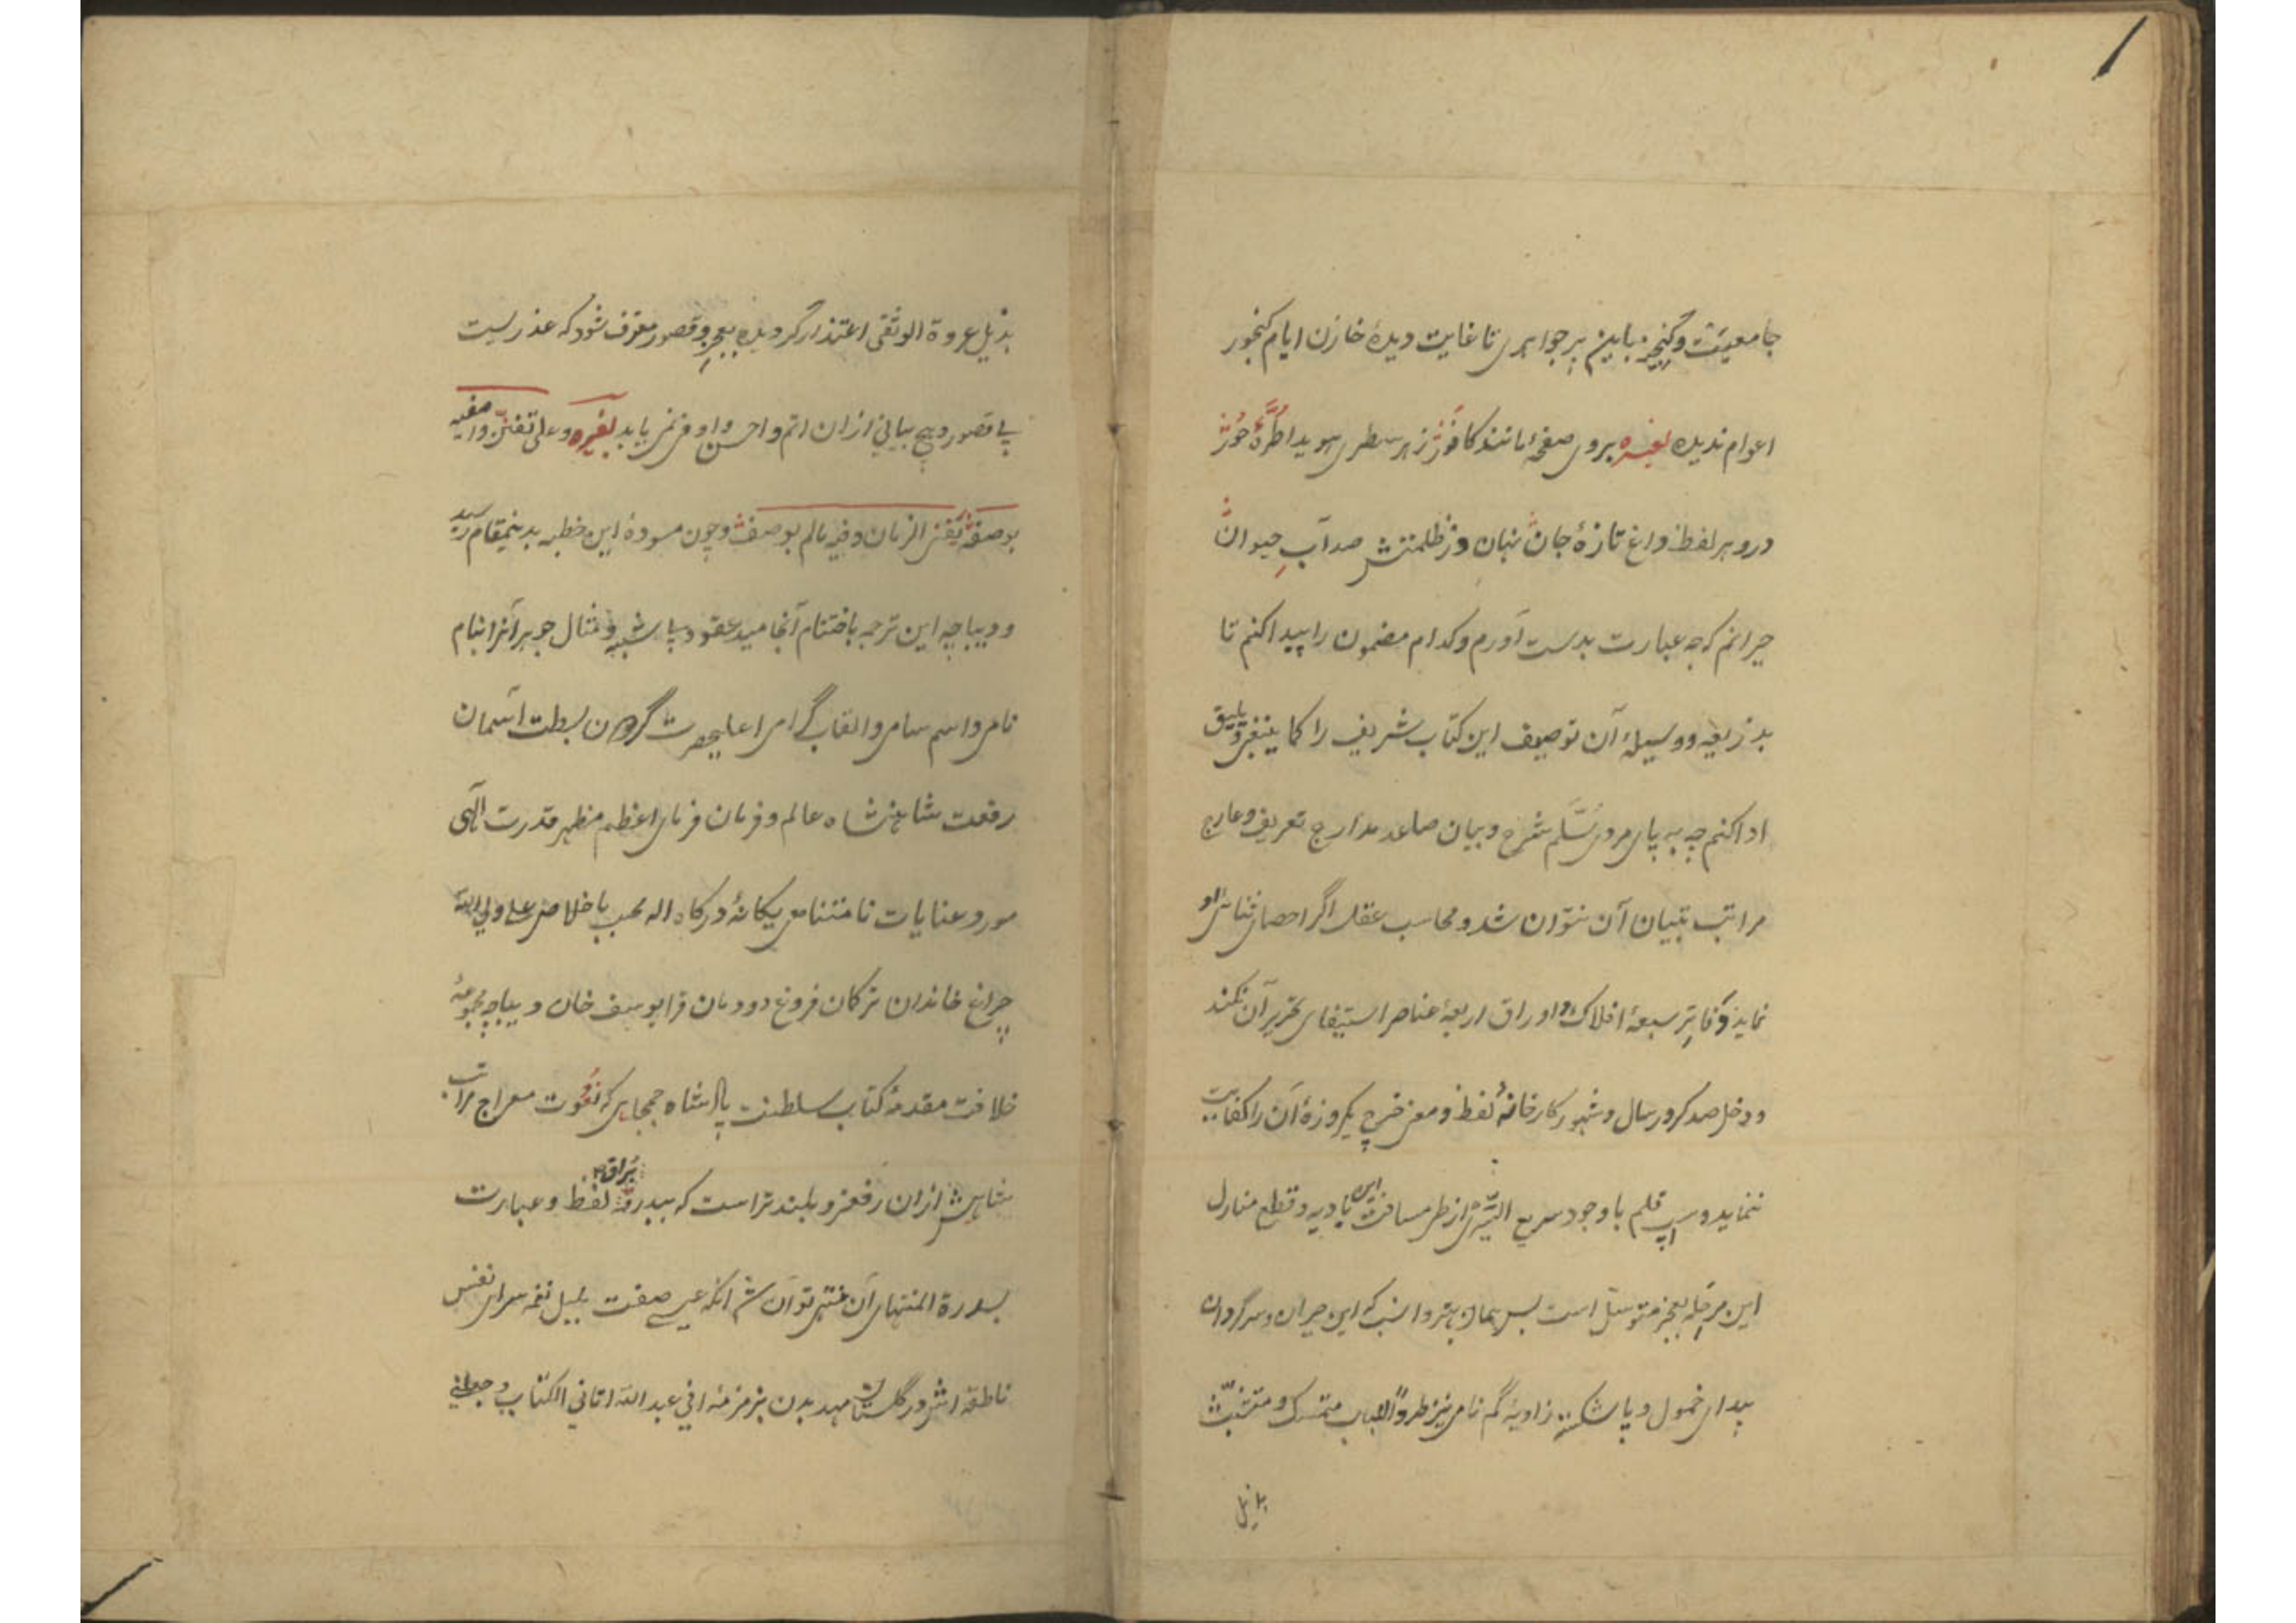 جامعیتش و گنجینه باین پر جواهری تا غایت دیدهٔ خازن ایام گنجور
اعوام ندیده لغیره بروی صفحهٔ مانند کافور ز هر سطری هویدا طرهٔ حور
درو هر لفظ داغ تازهٔ جان نهان در ظلمتش صد آب حیوان
حیرانم که چه عبارت بدست آورم و کدام مضمون را پیدا کنم تا
بذریعه و وسیلهٔ آن توصیف این کتاب شریف را کما ینبغی و یلیق
ادا کنم چه به پای مردی سلم شرح و بیان صاعد مدارج تعریف و عارج
مراتب تبیان آن نتوان شد و محاسب عقل اگر احصای ثنای او
نماید دفاتر سبعهٔ افلاک و اوراق اربعهٔ عناصر استیفای تحریر آن نکند
و دخل صد کرور سال و شهور کارخانهٔ لفظ و معنی خرج یکروزهٔ آن را کفایت
ننماید و اسپ قلم با وجود سریع السیری از طی مسافت این بادیه و قطع منازل
این مرحله بعجز متوسل است پس همان بهتر و انسب که این حیران و سرگردان
بیدای خمول و پا شکستهٔ زاویهٔ گم نامی نیز طرداً للباب متمسک و متشبث
بذیل
بذیل عروة الوثقی اعتذار گردیده بعجز و قصور معترف شود که عذریست
بی قصور و هیچ بیانی ازان اتم و احسن و اوفر نمی یابد لغیره و علی تفنن واصفیه
بوصفه یفنی الزمان و فیه مالم یوصف و چون مسودهٔ این خطبه بدینمقام رسید
و دیباچه این ترجمه باختتام انجامید عقود بی شبه و مثال جوهر آنرا بنام
نامی و اسم سامی و القاب گرامی اعلیحضرت گردون بسطت آسمان
رفعت شاهنشاه عالم و فرمان فرمای اعظم مظهر قدرت الهی
مورد عنایات نامتناهی یکانهٔ درگاه اله محب باخلاص علی ولی الله
چراغ خاندان ترکمان فروغ دودمان قرا یوسف خان دیباچه مجموعهٔ
خلافت مقدمهٔ کتاب سلطنت پادشاه جمجاهی که نعوت معراج مراتب
شاهیش ازان رفیعتر و بلندتر است که ببدرقهٔ براق لفظ و عبارت
بسدرة المنتهای آن منتهی توان شد آنکه عیسی صفت بلبل نغمه سرای نفس
ناطقه اش در گلستان مهد بدن بزمزمهٔ انی عبد الله اتانی الکتاب و جعلنی